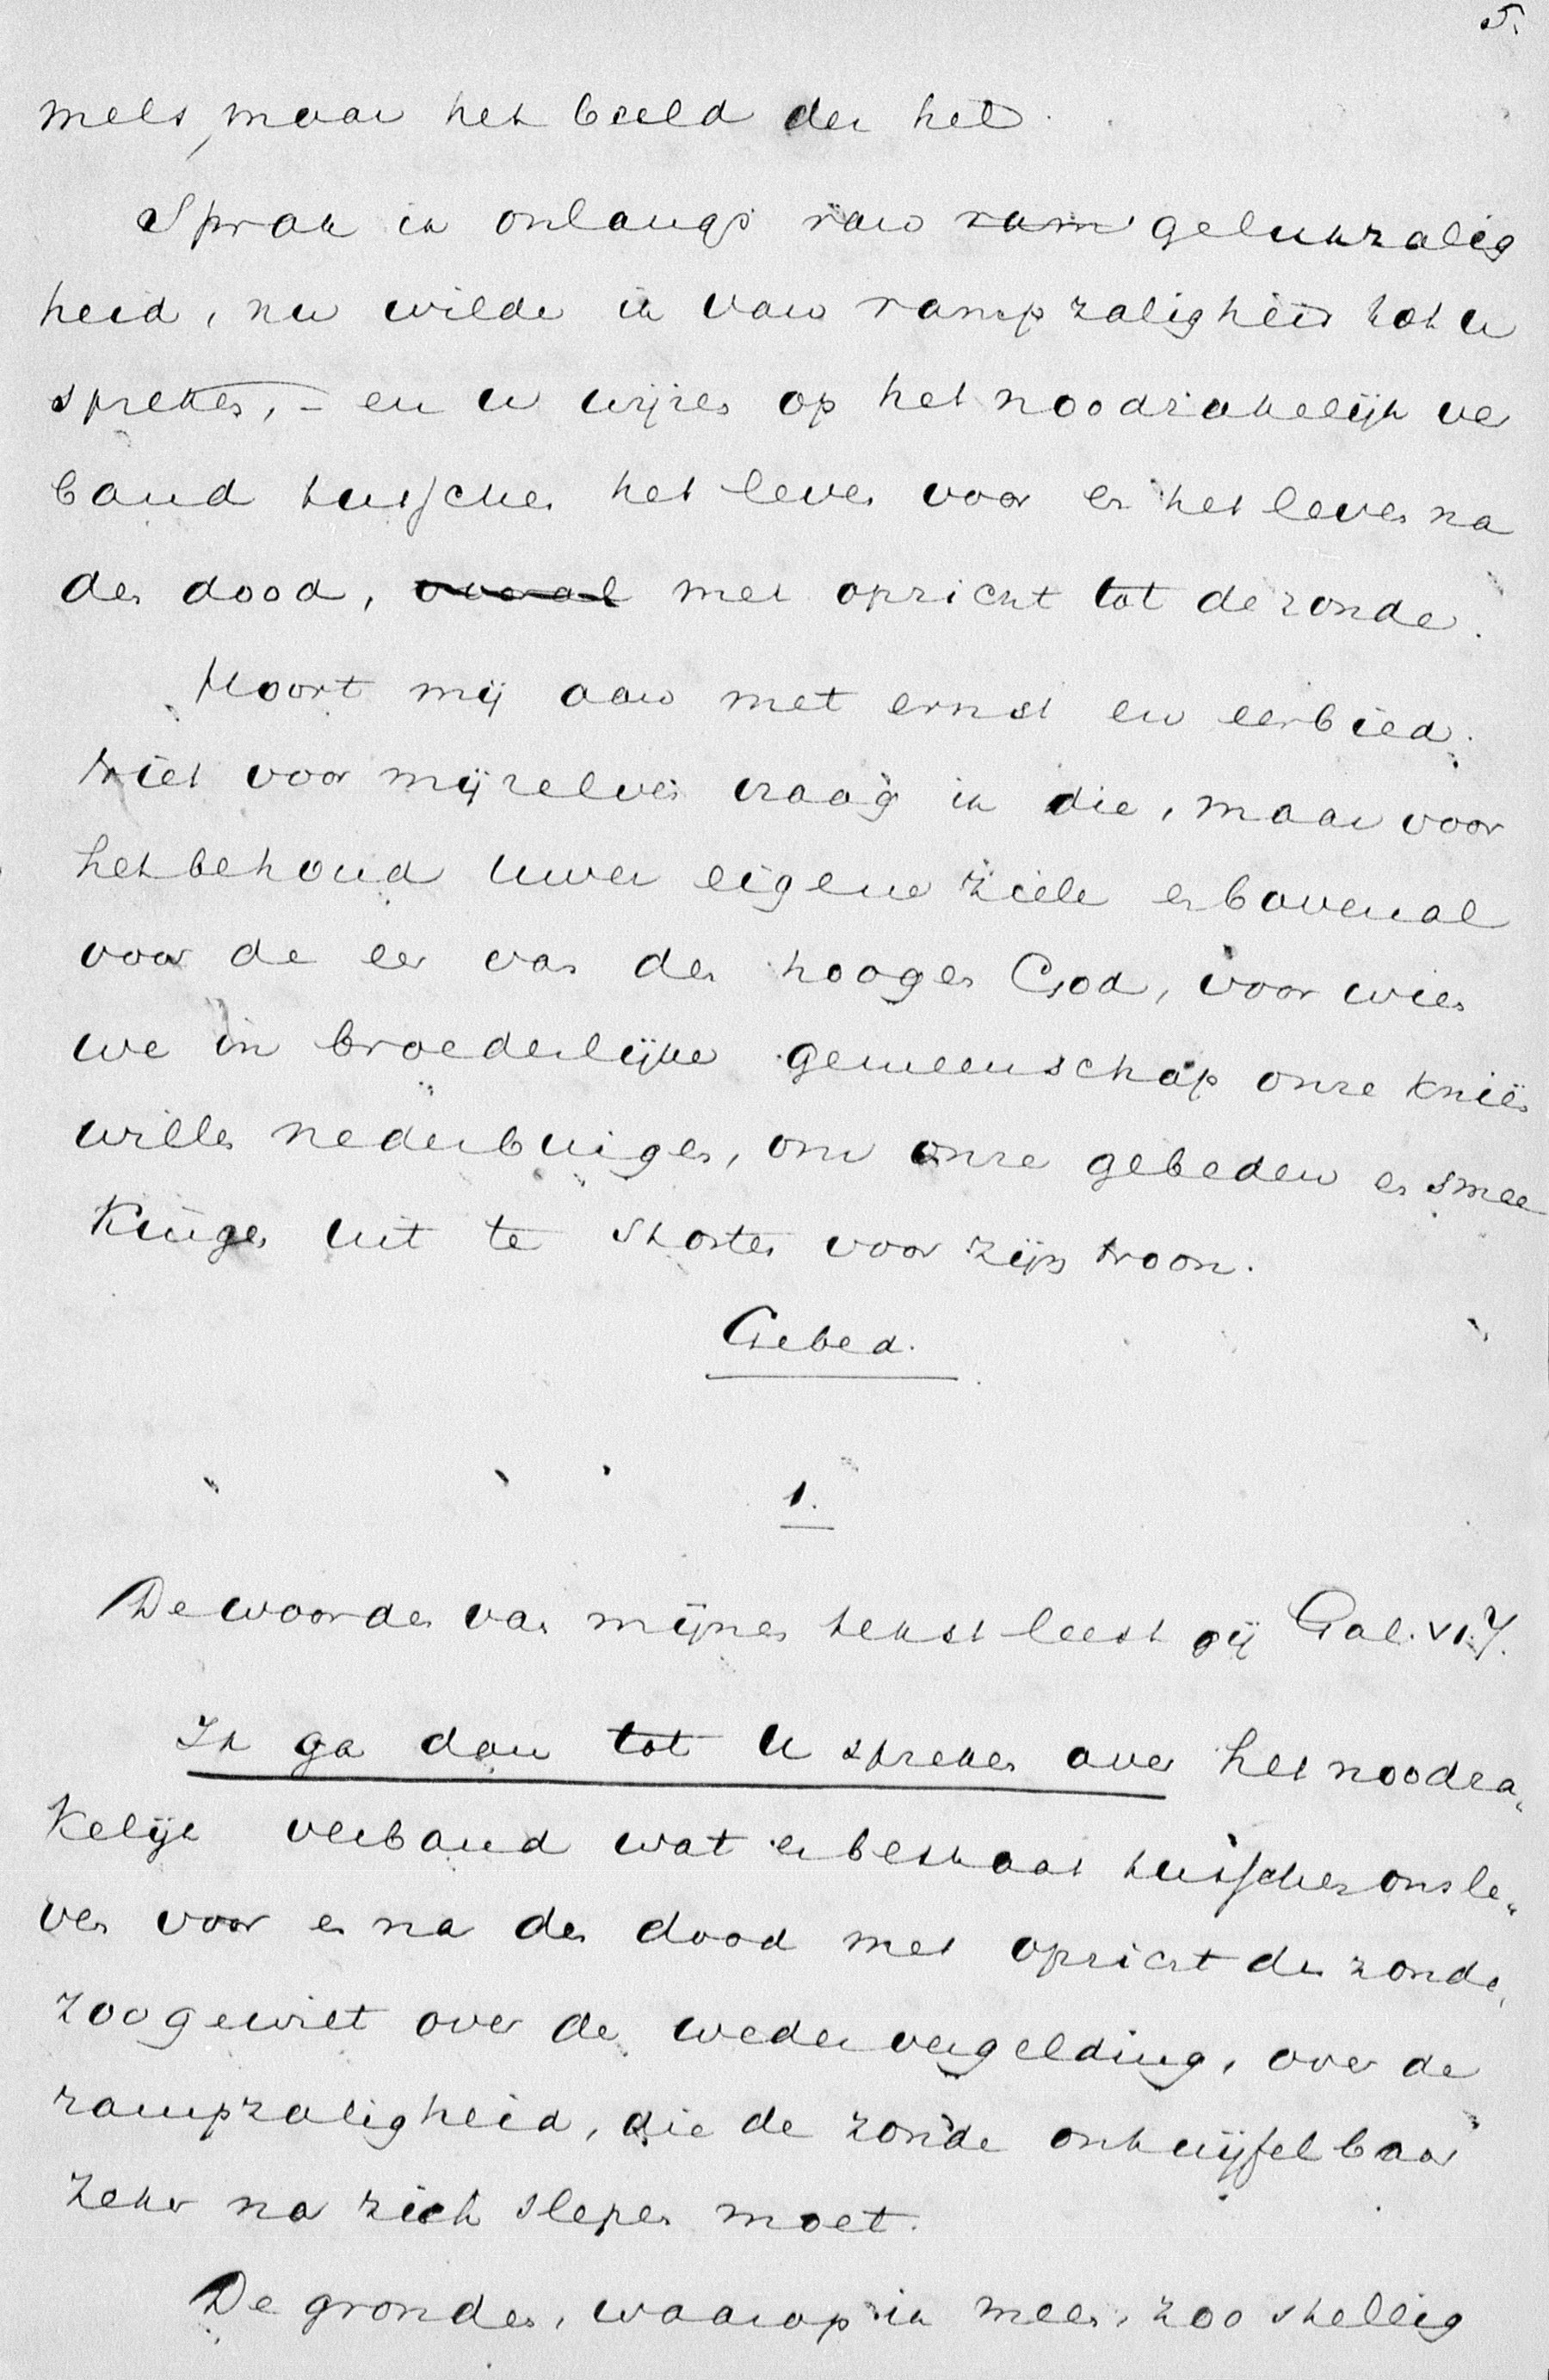 5.
mels, maar het beeld der hel.
Sprak ik onlangs van ram gelukzalig
heid, nu wilde ik van rampzaligheid tot u
spreken, – en u wijzen op het noodzakelijk ver
band tusschen het leven voor en het leven na
den dood, vooral met opzicht tot de zonde.
Hoort mij aan met ernst en eerbied.
Niet voor mijzelven vraag ik die, maar voor
het behoud uwer eigene ziele en bovenal
voor de eer van den hoogen God, voor wien
we in broederlijke gemeenschap onze knieën
willen nederbuigen, om onze gebeden en smee
kingen uit te storten voor zijn troon.
Gebed.
1.
De woorden van mijnen tekst leest gij Gal. VI.7.
Ik ga dan tot u spreken over het noodza„
kelijk verband wat er bestaat tusschen ons le„
ven voor en na den dood met opzicht der zonde,
zoo gewist over de wedervergelding, over de
rampzaligheid, die de zonde ontwijfelbaar
zeker na zich slepen moet.
De gronden, waarop ik meen, zoo stellig